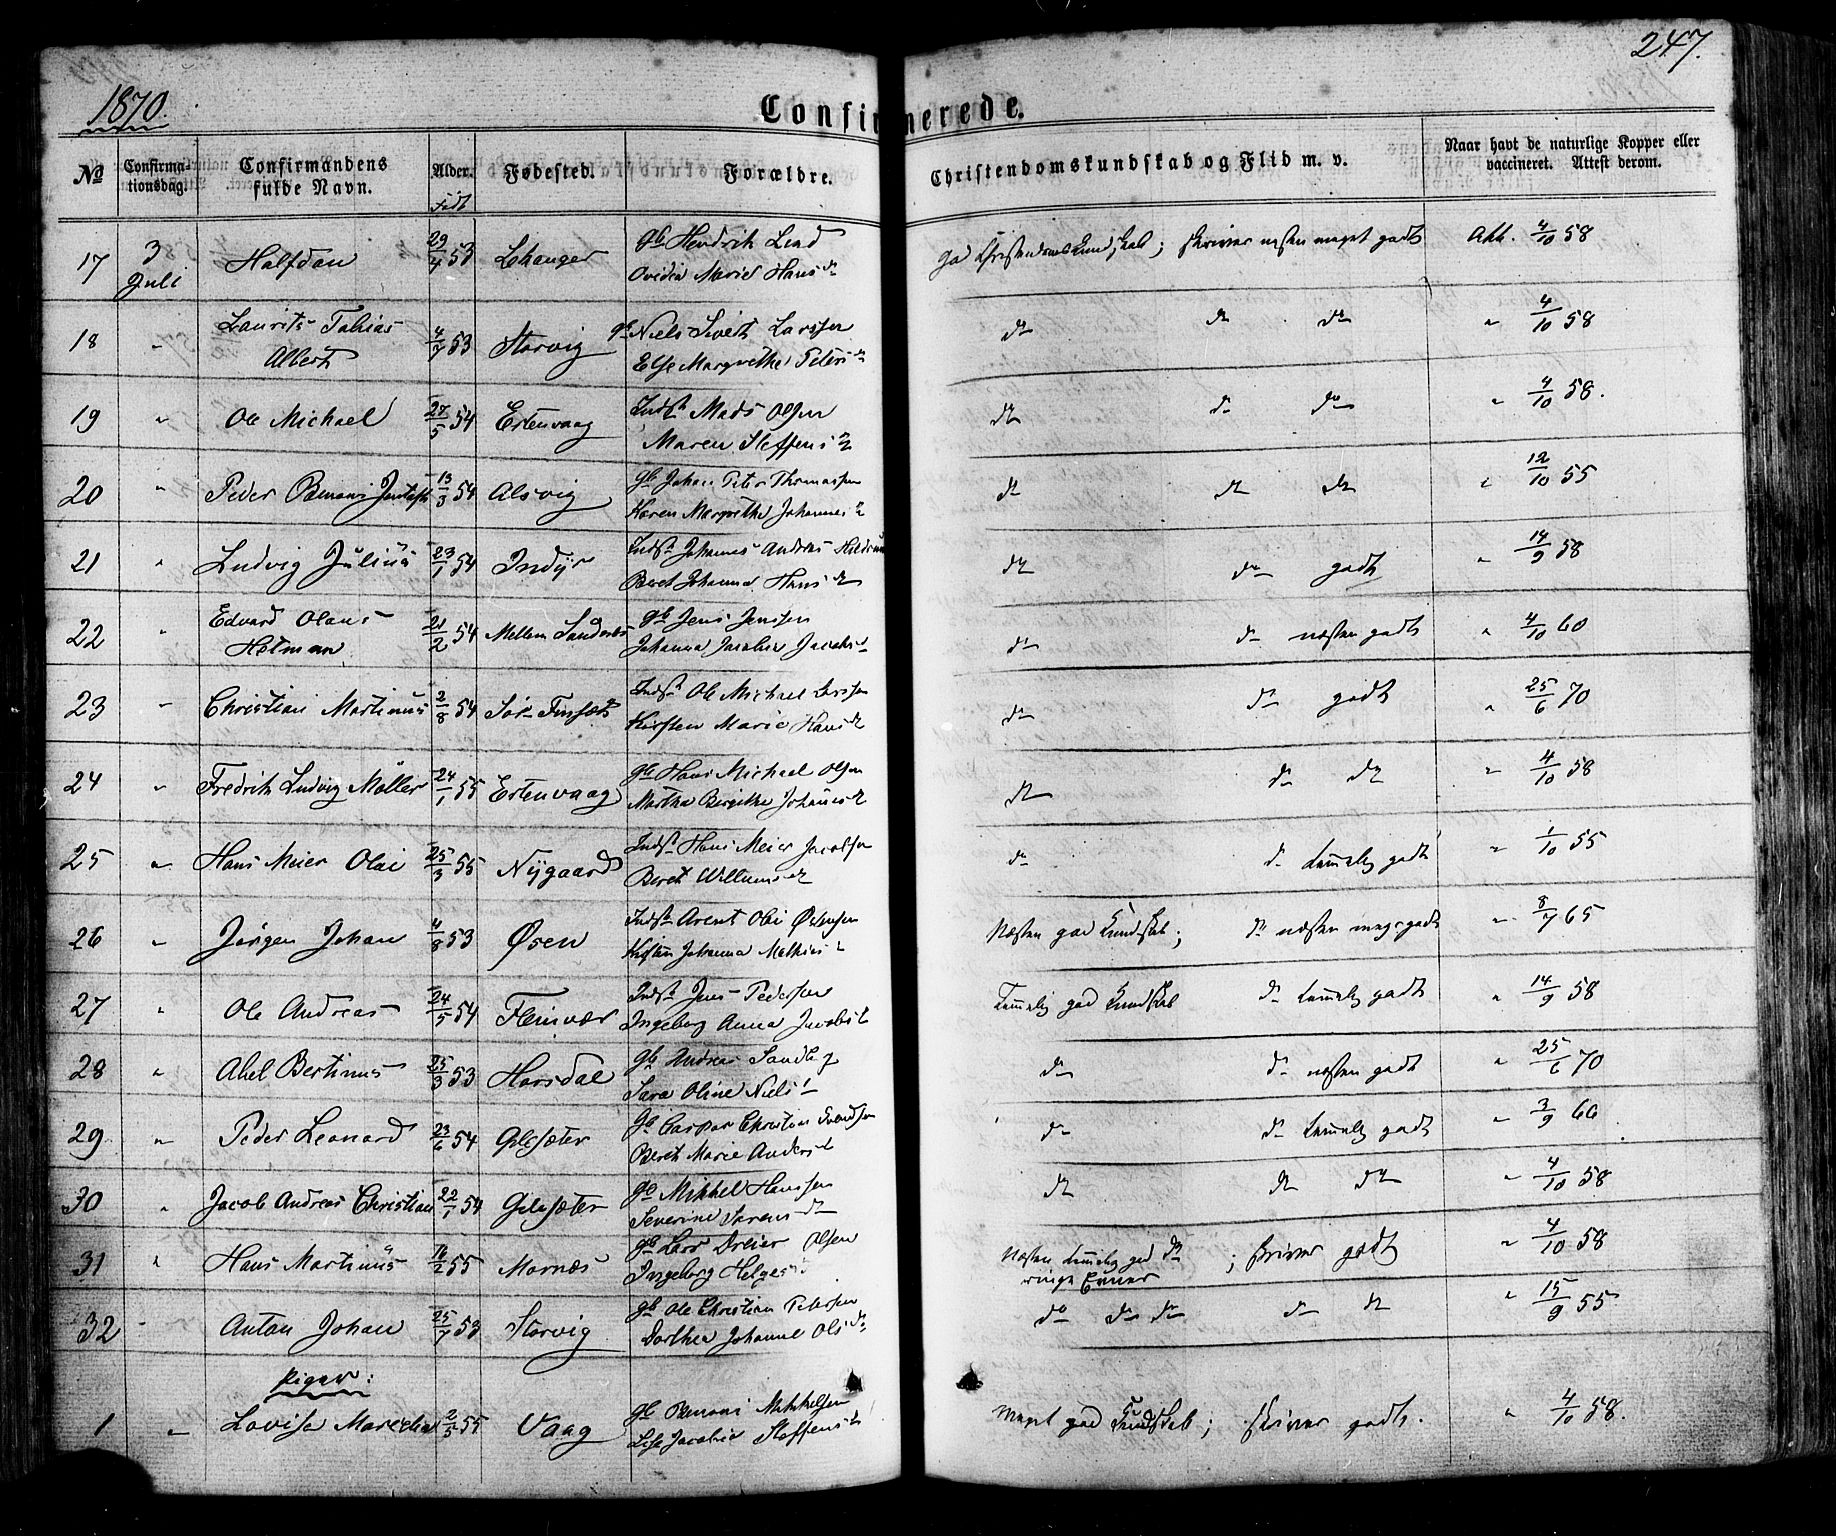 1870.
247.
Confirmerede.
No
Confirmationsdag.
Confirmandens fulde Navn.
Alder. Født
Fødested.
Forældre.
Christendomskundskab og Flid m. v.
Naar havt de naturlige Kopper eller vaccineret. Attest derom.
17 3 Juli Halfdan 29/4 53 Hendrik Lind
Ovidia Marie Hans d. god Christendomskundskab; skriver næsten meget godt Att. 4/10 58
18 " Laurits Tobias 4/7 53 Storvig Niels Sivert Larssen
Albert Else Margrethe Peters d. do do do " 4/10 58
19 " Ole Michael 27/5 54 Ertenvaag Inds. Mads Olsen
Maren Steffens d. do do do " 4/10 58.
20 " Peder Benoni 13/3 54 Alsvig gb Johan Peter Thomassen
Karen Margrethe Johannes d. do do do " 12/10 55
21 " Ludvig Julius 23/1 54 Indyr Inds. Johannes Andreas
Beret Johanna Hans d. do do godt " 14/9 58
22 " Edvard Olaus 21/2 54 Mellem gb Jens Jenssen
Hetman Johanna Jacobs d. do do næsten godt " 4/10 60
23 " Christian Martinus 2/8 54 Sør Inds. Ole Michael Larssen
Kirsten Marie Hans d. do do godt " 25/6 70
24 " Fredrik Ludvig Møller 24/1 55 Ertenvaag gb Hans Michael Olsen
Martha Birgitte Johannes d. do do do " 4/10 58
25 " Hans Meier Olai 25/3 55 Nygaard Inds. Hans Meier Jacobsen
Beret Willums d. do do temmelig godt " 1/10 55
26 " Jørgen Johan 4/8 53 Øsen Inds. Arent
Johanna Mathias d. Næsten god Kundskab; do næsten meget godt " 8/7 65
27 " Ole Andreas 24/5 54 Fleinvær Inds. Jens Pedersen
Ingeborg Anna Jacobs d. Temmelig god Kundskab do temmelig godt " 14/9 58
28 " Abel Bertinus 25/3 53 Horsdal gb Andreas
Sara Oline Niels d. do do næsten godt " 25/6 70
29 " Peder Leonard 23/6 54 Gilesæter Caspar Christian
Beret Marie Anders d. do do temmelig godt " 3/9 60
30 " Jacob Andreas Christian 22/1 54 Gilesæter Mikkel Hanssen
Severine Sørens d. do do do " 4/10 58
31 " Hans Martinus 16/2 55 Mornæs gb Lars Dreier Olsen
Ingeborg Helges d. Næsten temmelig god do ; skriver godt " 4/10 58
ringe Evner
32 " Anton Johan 25/7 53 Storvig gb Ole Christian Petersen
Dorthea Johanne Ols d. do do do do do " 15/9 55
Piger:
1 " Lovisa 2/3 55 Vaag gb Benoni Mikkelsen
Jacobia Steffens d. Meget god Kundskab; skriver godt. " 4/10 58.